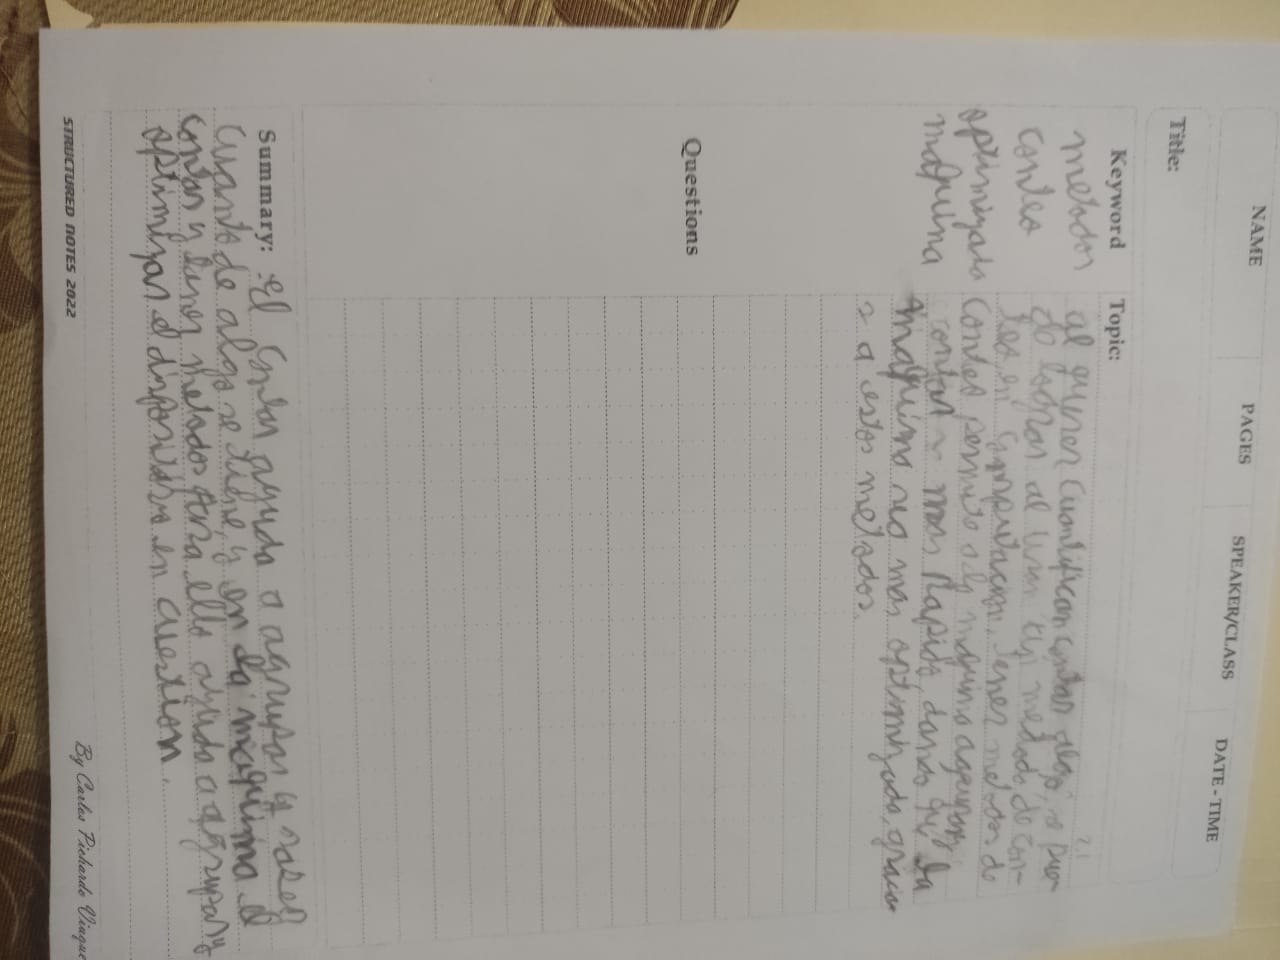 NAME
PAGES
SPEAKER/CLASS
DATE - TIME
Title:
Keyword
Topic:
2.1
metodos
conteo
optimizado
maquina
al querer cuantificar contar algo, se pue-
de lograr al usar un metodo de con-
teo, en computacion, tener metodos de
conteo permite a la maquina agrupar y
contar mas rapido, dando que la
maquina sea mas optimizada, gracia
s a estos metodos.
Questions
Summary: El contar ayuda a agrupar y saber
cuanto de algo se tiene, y en la maquina el
contar y tener metodos para ello ayuda a agrupar y
optimizar el dispositivo en cuestion.
STRUCTURED NOTES 2022
By Carlos Pichardo Viuque